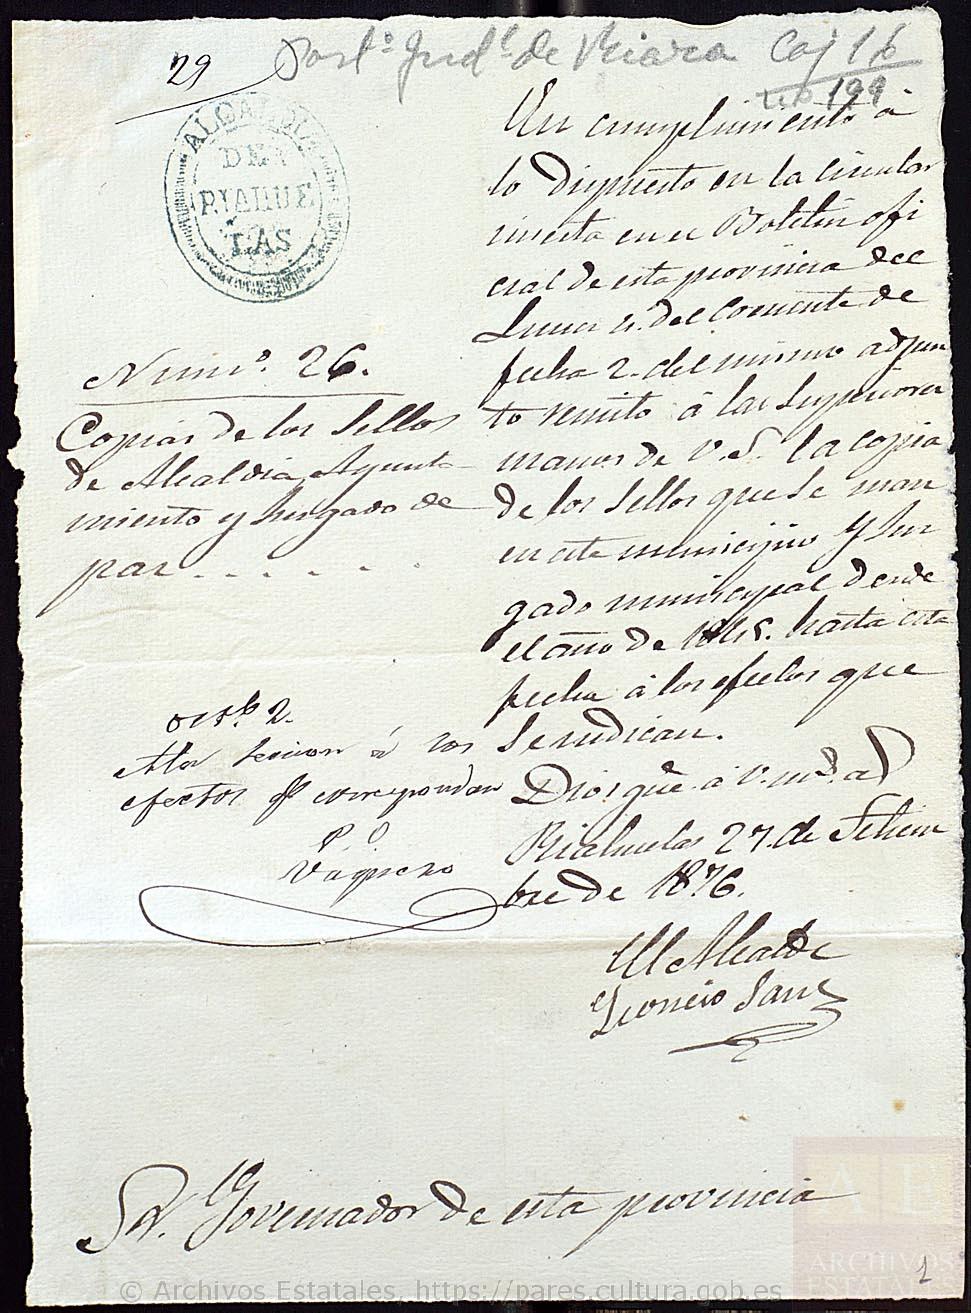 29
Part.º Jud.l de Riaza Caj 16
199
ALCALDIA
DE
RIAHUE
LAS
En cumplimiento á
lo dispuesto en la circular
inserta en el Boletin ofi
cial de esta provincia del
Lunes 4. del corriente de
fecha 2. del mismo adjun
to remito á las superiores
manos de V. S. la copia
de los sellos que se usan
en este municipio y Juz
gado municipal desde
el año de 1845. hasta esta
fecha á los efectos que
se indican.
Dios gue. á V. m.s a.s
Riahuelas 27. de Setiem
bre de 1876.
El Alcalde
Leoncio Sanz
Num.º 26.
Copias de los sellos
de Alcaldia, Ayunta
miento y Juzgado de
paz . . . . . .
oct.b 2.
A la seccion á los
efectos q. correspondan
P. O.
Vaquero
Sr. Governador de esta provincia
1
AE
ARCHIVOS
ESTATALES
© Archivos Estatales, https://pares.cultura.gob.es